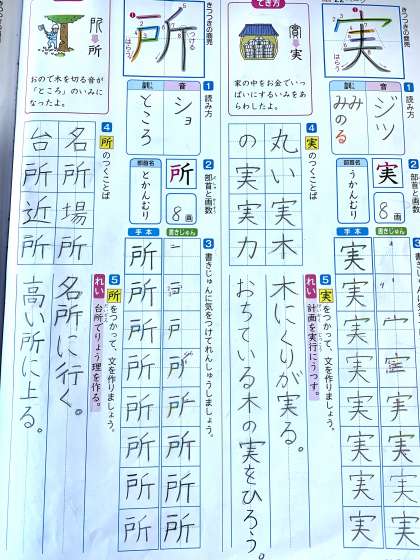 てき方
家の中をお金でいっ
ぱいにするいみをあ
らわしたよ。
実
きつつきの音児
1 読み方
音
ジツ
訓
み
みのる
2 部首と画数
実
8画
部首名
うかんむり
4 実のつくことば
丸い実木
の実実力
3 書きじゅんに気をつけてれんしゅうしましょう。
手本
書きじゅん
実
実
実
実
実
実
実
実
5 実をつかって、文を作りましょう。
れい 計画を実行にうつす。
木にくりが実る。
おちている木の実をひろう。
所
おので木を切る音が
「ところ」のいみに
なったよ。
所
はらう
つける
1 読み方
音
ショ
訓
ところ
2 部首と画数
所
8画
部首名
とかんむり
4 所のつくことば
名所場所
台所近所
3 書きじゅんに気をつけてれんしゅうしましょう。
手本
書きじゅん
所
所
所
所
所
所
所
所
5 所をつかって、文を作りましょう。
れい 台所でりょう理を作る。
名所に行く。
高い所に上る。